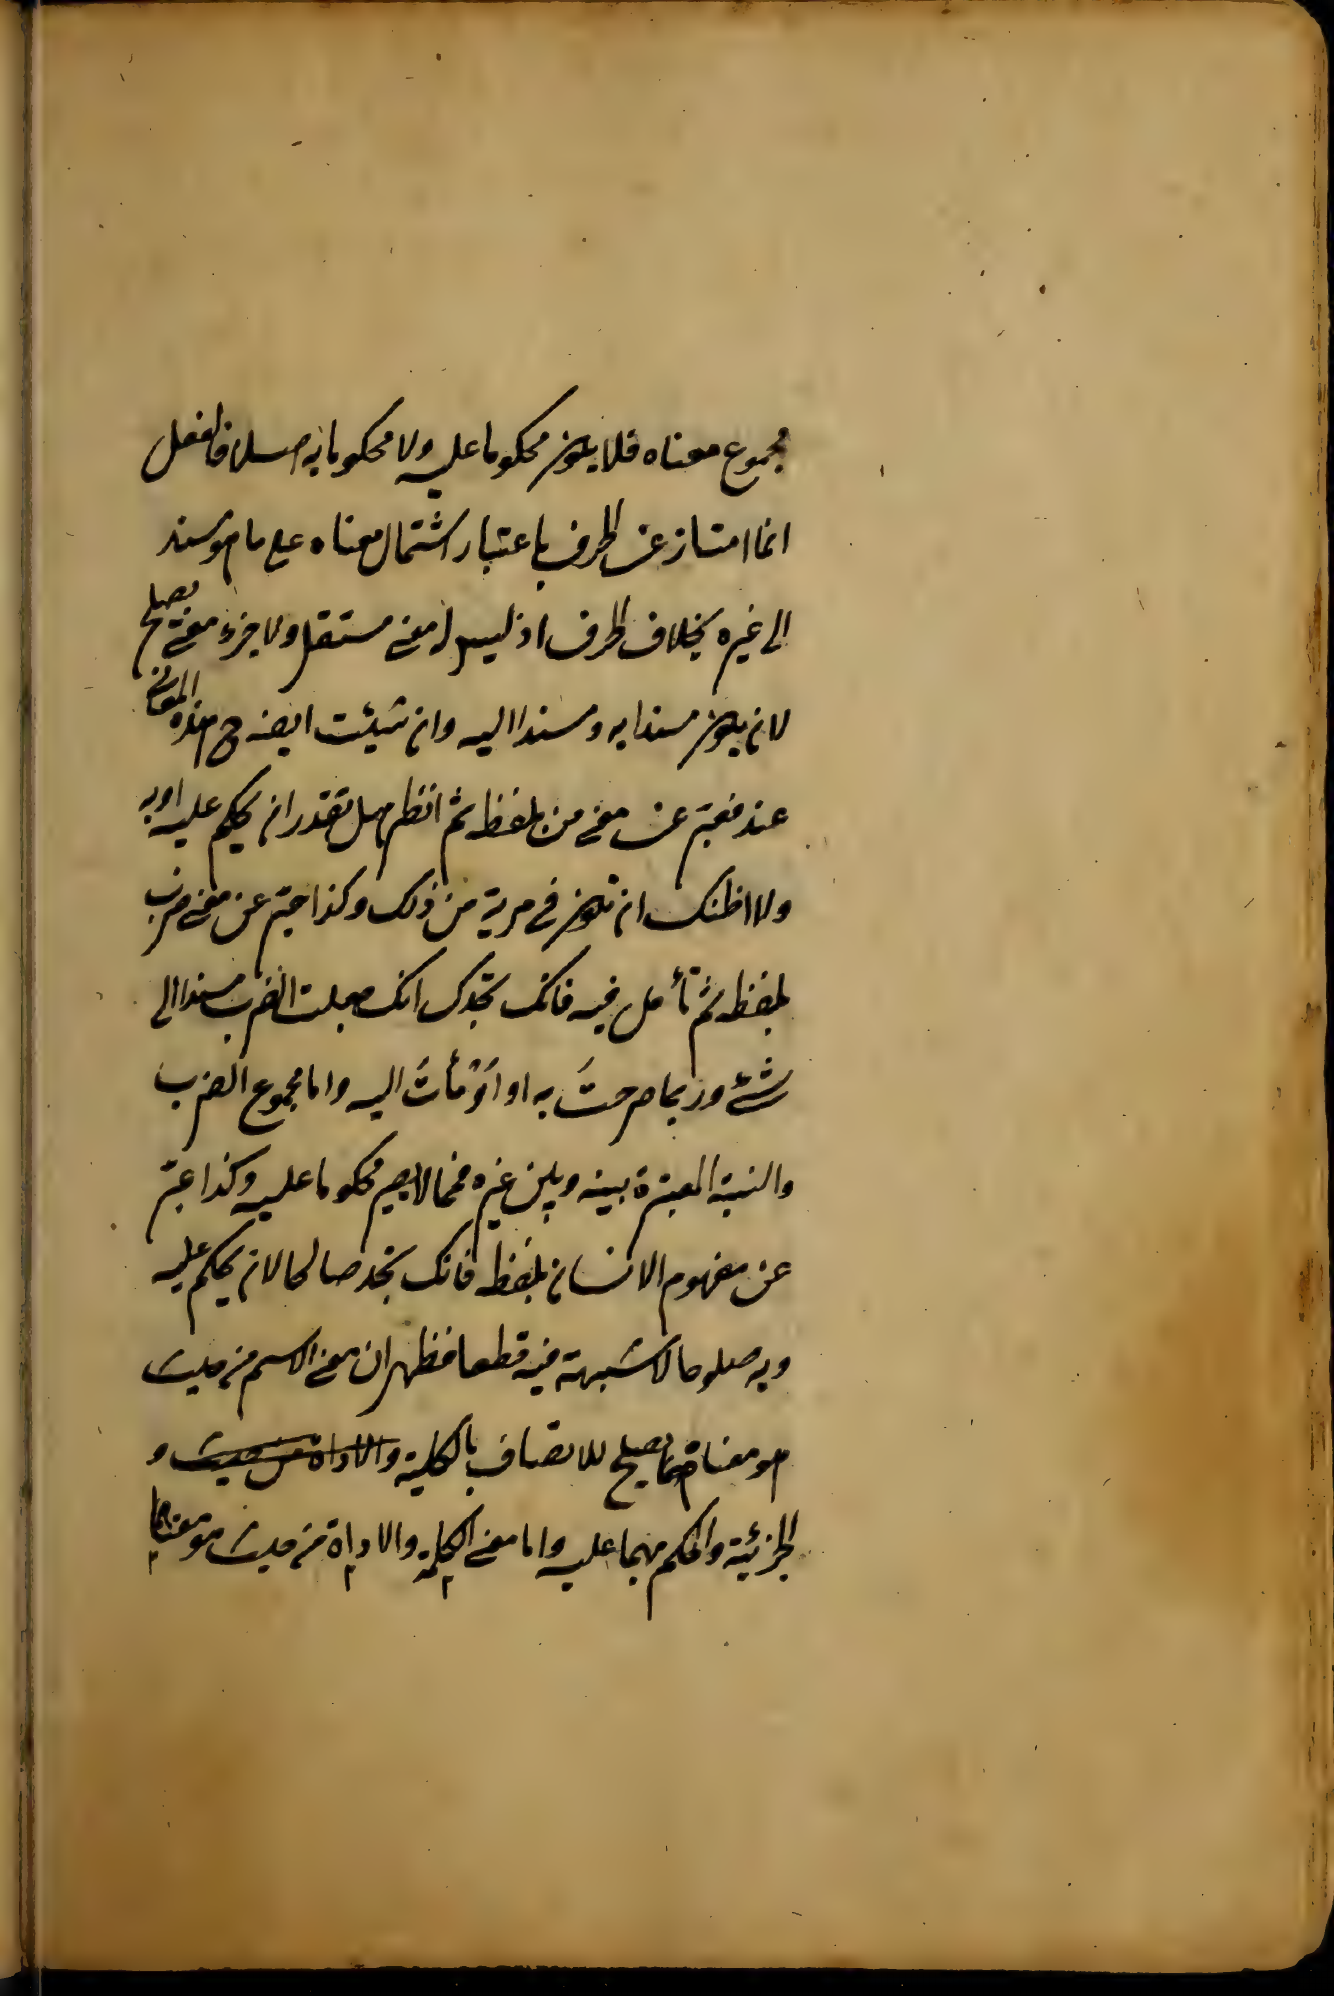 مجموع معناه فلا يكون محكوما عليه ولا محكوما به اصلا فالفعل
انما امتاز عن الحرف باعتبار اشتمال معناه على ما هو مسند
الى غيره بخلاف الحرف اذ ليس له معنى مستقل ولا جزء معنى يصلح
لان يكون مسندا به ومسندا اليه وان شئت ايضاح هذه المعانى
عندك فعبر عن معنى من بلفظه ثم انظر هل تقدر ان يحكم عليه او به
ولا اظنك ان تكون فى مرية من ذلك وكذا عبر عن معنى ضرب
بلفظه ثم تأمل فيه فانك تجدك انك جعلت الضرب مسندا الى
شئ وربما صرحتَ به او اَوْمأتَ اليه واما مجموع الضرب
والنسبة المعتبرة بينه وبين غيره فمما لا يصير محكوما عليه وكذا عبر
عن مفهوم الانسان بلفظه فانك تجده صالحا لان يحكم عليه
وبه صلوحا لا شبهة فيه قطعا فظهر ان معنى الاسم من حيث
هو معناه يصلح للاتصاف بالكلية والاداة من حيث و
الجزئية والحكم بهما عليه واما معنى الكلمة والاداة من حيث هو معناهما